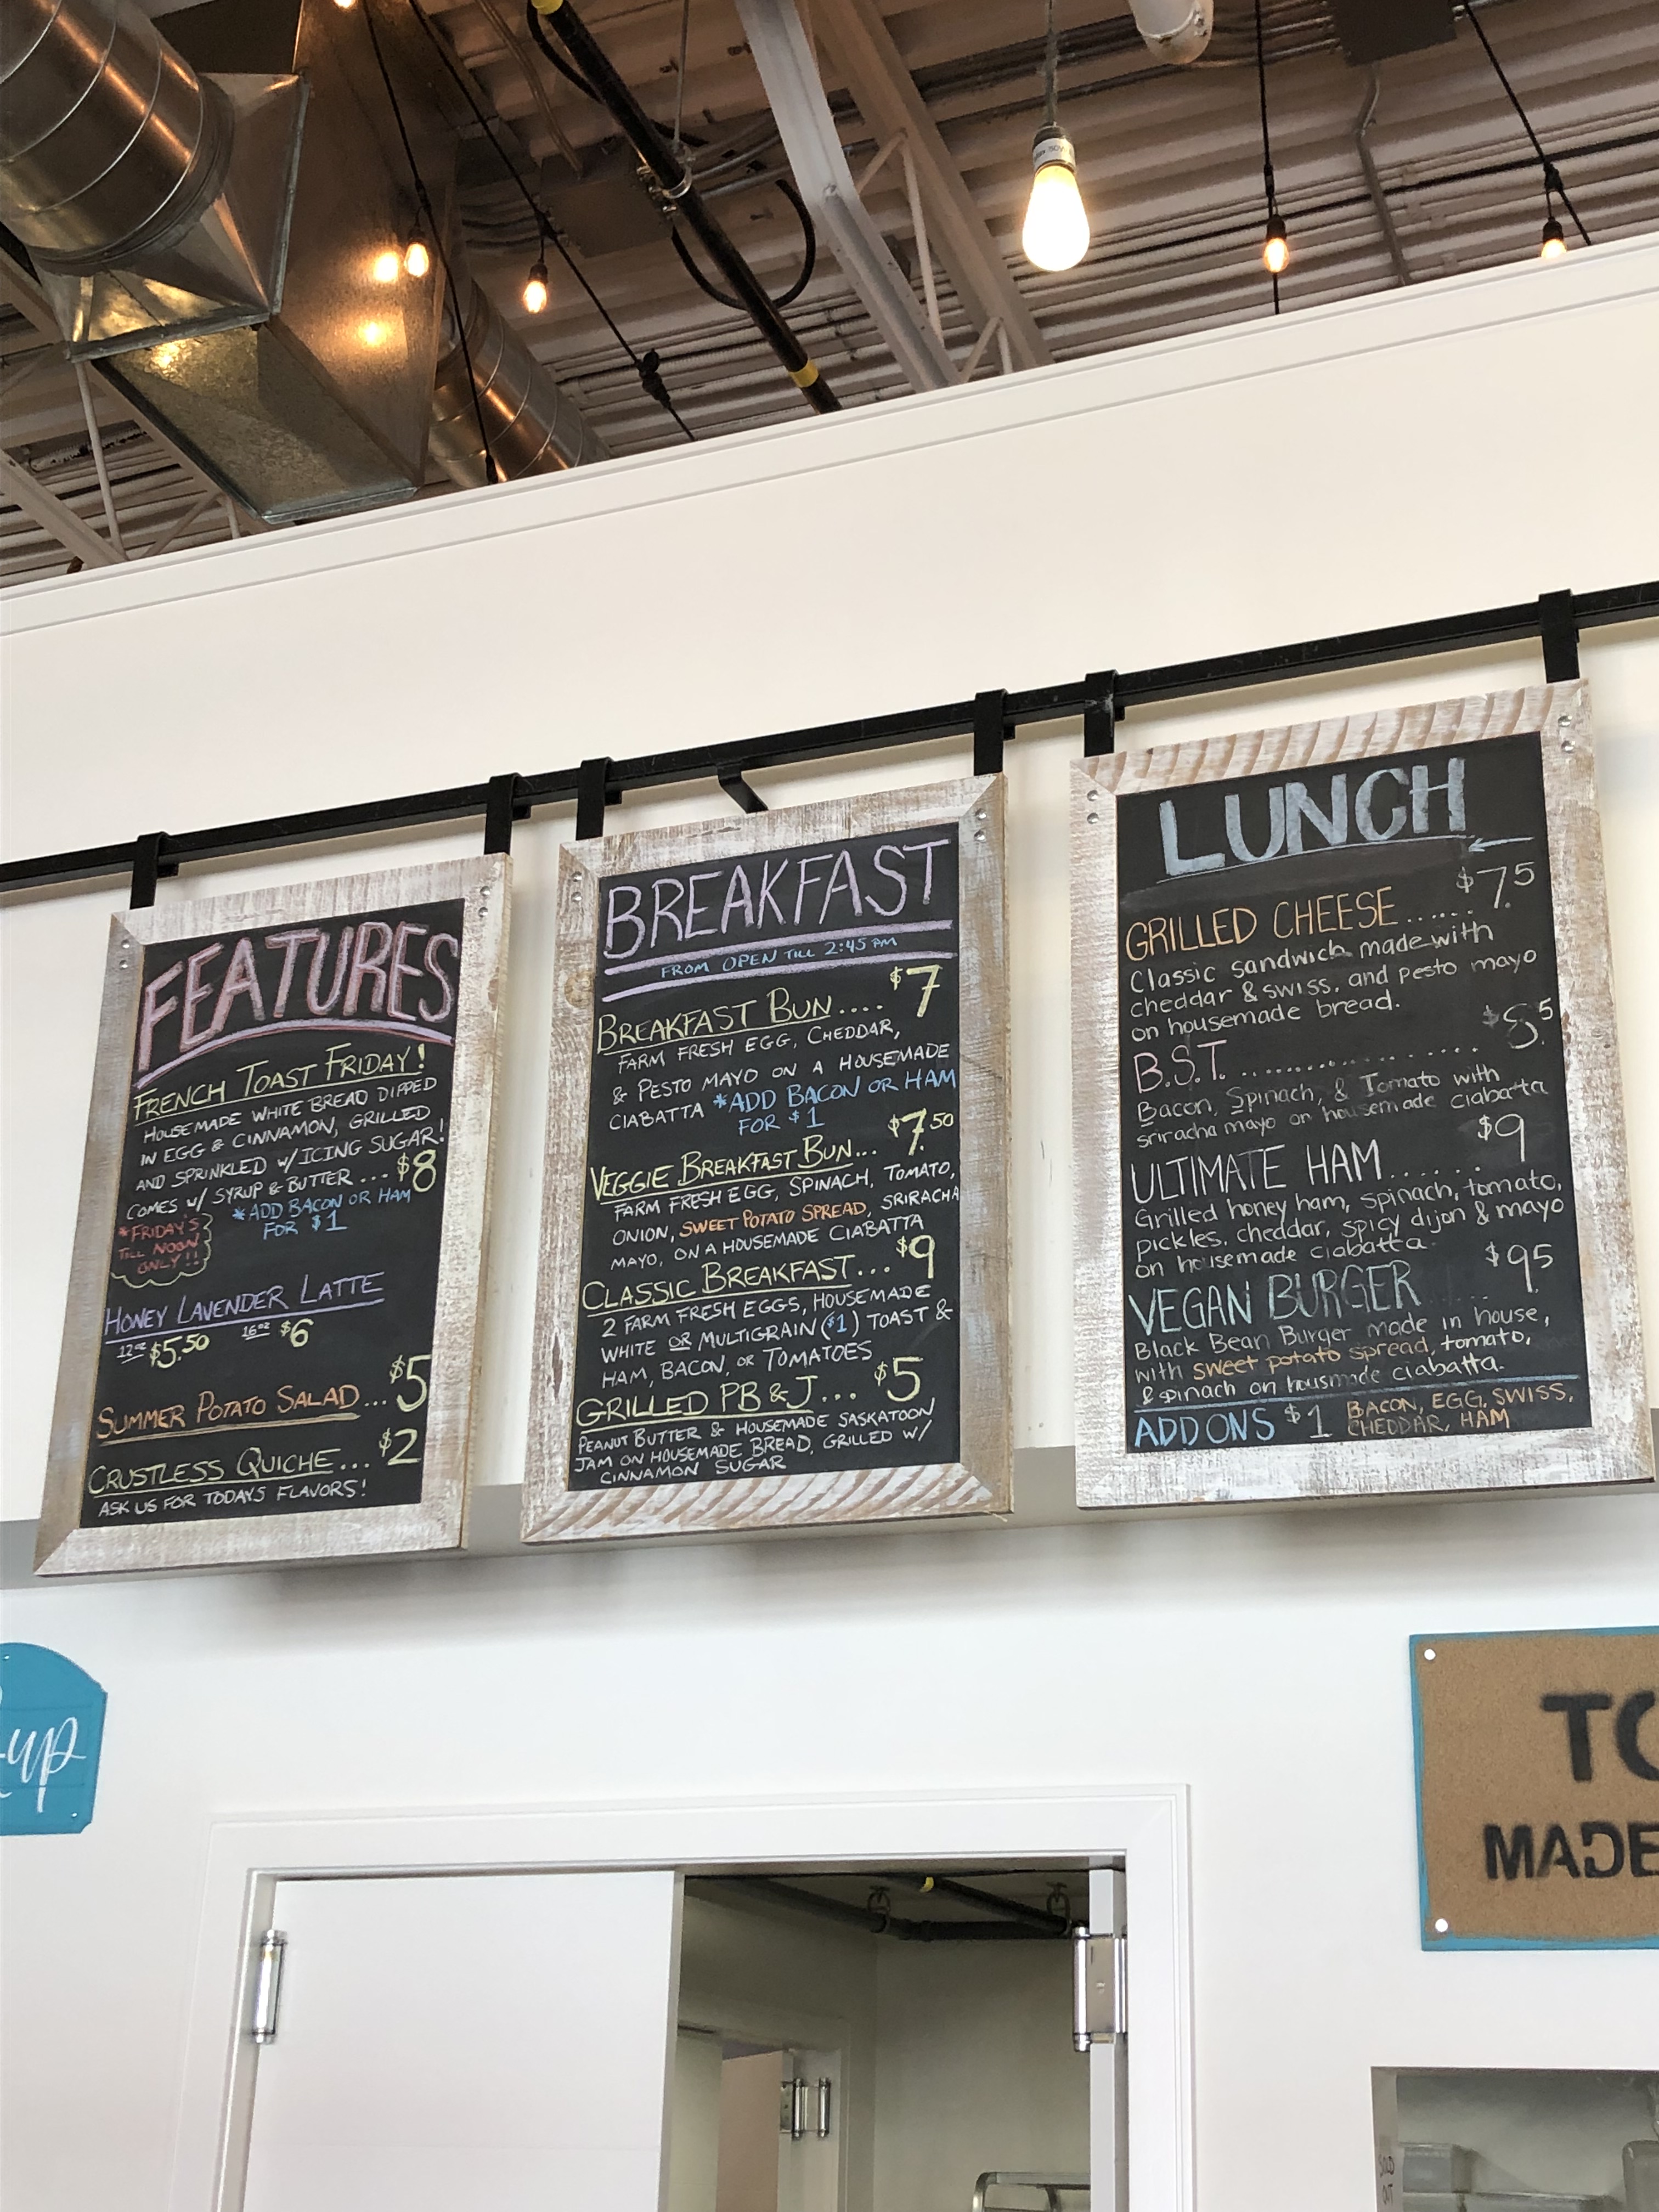 FEATURES
FRENCH TOAST FRIDAY!
HOUSEMADE WHITE BREAD DIPPED
IN EGG & CINNAMON, GRILLED
AND SPRINKLED W/ICING SUGAR!
COMES W/ SYRUP & BUTTER... $8
*ADD BACON OR HAM
FOR $1
*FRIDAY'S
TILL NOON
ONLY!!
HONEY LAVENDER LATTE
12oz $5.50 16oz $6
SUMMER POTATO SALAD... $5
CRUSTLESS QUICHE... $2
ASK US FOR TODAYS FLAVORS!
BREAKFAST
FROM OPEN TILL 2:45 PM
BREAKFAST BUN.... $7
FARM FRESH EGG, CHEDDAR,
& PESTO MAYO ON A HOUSEMADE
CIABATTA *ADD BACON OR HAM
FOR $1
VEGGIE BREAKFAST BUN... $7.50
FARM FRESH EGG, SPINACH, TOMATO,
ONION, SWEET POTATO SPREAD, SRIRACHA
MAYO, ON A HOUSEMADE CIABATTA
CLASSIC BREAKFAST... $9
2 FARM FRESH EGGS, HOUSEMADE
WHITE OR MULTIGRAIN ($1) TOAST &
HAM, BACON, OR TOMATOES
GRILLED PB & J... $5
PEANUT BUTTER & HOUSEMADE SASKATOON
JAM ON HOUSEMADE BREAD, GRILLED W/
CINNAMON SUGAR
LUNCH
GRILLED CHEESE...... $7.5
Classic sandwich made with
cheddar & swiss, and pesto mayo
on housemade bread.
B.S.T. ................ $8.5
Bacon, Spinach, & Tomato with
sriracha mayo on housemade ciabatta
ULTIMATE HAM...... $9
Grilled honey ham, spinach, tomato,
pickles, cheddar, spicy dijon & mayo
on housemade ciabatta.
VEGAN BURGER .... $9.5
Black Bean Burger made in house,
with sweet potato spread, tomato,
& spinach on housmade ciabatta.
ADD ONS $1 BACON, EGG, SWISS,
CHEDDAR, HAM
up
TO
MADE